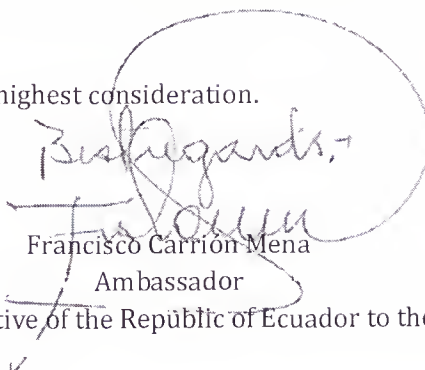 highest consideration.
Best regards,
Francisco Carrión Mena
Ambassador
tive of the Republic of Ecuador to the